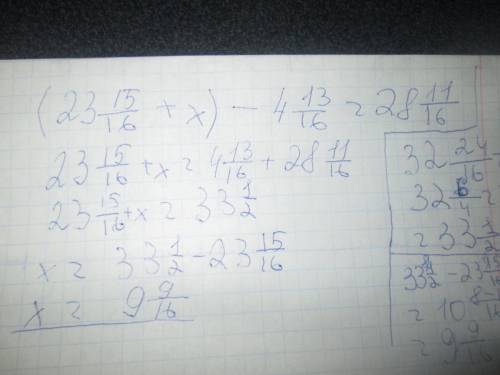 (23 15/16 + x) - 4 13/16 = 28 11/16
23 15/16 + x = 4 13/16 + 28 11/16
23 15/16 + x = 33 1/2
x = 33 1/2 - 23 15/16
x = 9 9/16
32 24/16
32
= 33 1/2
- 23 15/16
= 10
= 9 9/16